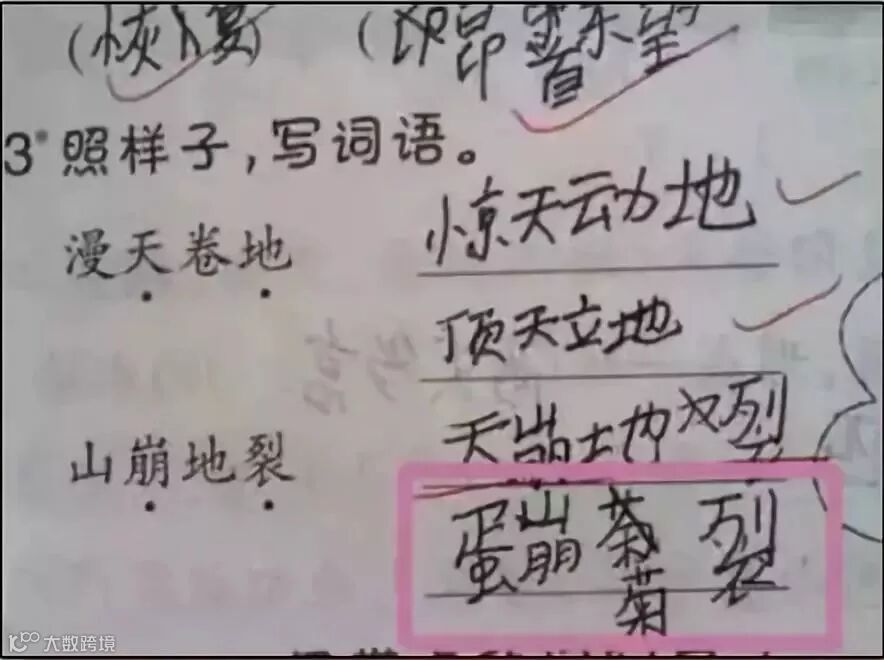 (恢复) (印昂首东望)
3 照样子，写词语。
漫天卷地 惊天动地
顶天立地
山崩地裂 天崩地裂
蛋崩菊裂
大数跨境